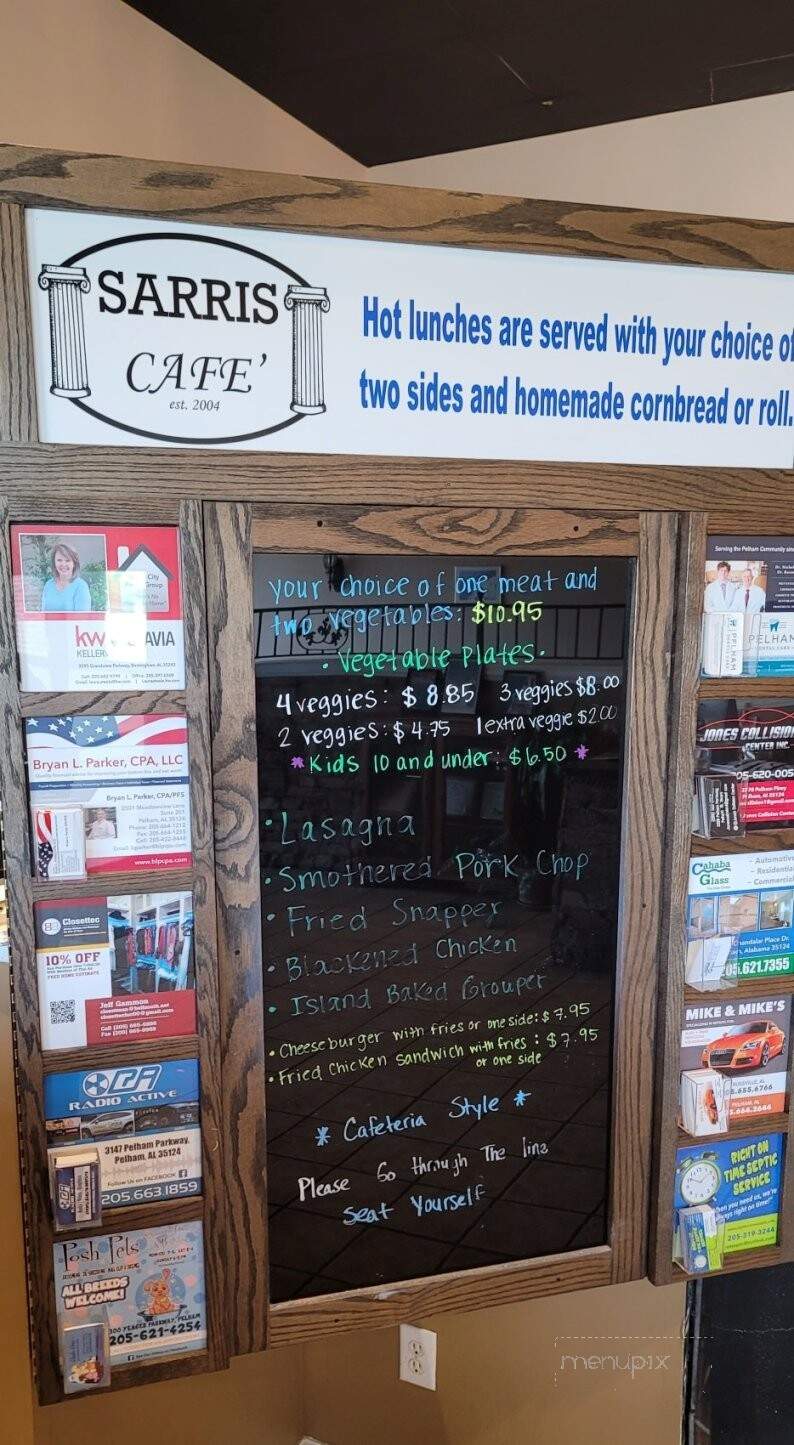 SARRIS
CAFE'
est. 2004
Hot lunches are served with your choice of
two sides and homemade cornbread or roll.
your choice of one meat and
two vegetables: $10.95
• Vegetable Plates •
4 veggies: $8.85 3 veggies $8.00
2 veggies: $4.75 1 extra veggie $2.00
*Kids 10 and under: $6.50 *
• Lasagna
• Smothered Pork Chop
• Fried Snapper
• Blackened Chicken
• Island Baked Grouper
• Cheeseburger with fries or one side: $7.95
• Fried Chicken Sandwich with fries : $7.95
or one side
* Cafeteria Style *
Please Go through The line
Seat Yourself
City
Group
kw AVIA
KELLER
Bryan L. Parker, CPA, LLC
Bryan L. Parker, CPA/PFS
Pelham, AL 35124
www.blpcpa.com
Closettec
10% OFF
FREE HOME ESTIMATE
Jeff Gammon
RADIO ACTIVE
3147 Pelham Parkway,
Pelham, AL 35124
Follow Us on FACEBOOK
205.663.1859
Posh Pets
ALL BREEDS
WELCOME!
300 YEAGER PARKWAY, PELHAM
205-621-4254
Serving the Pelham Community sin
PELHAM
DENTAL CARE
JONES COLLISION
CENTER INC.
05-620-005
Cahaba
Glass
- Automotive
- Residential
- Commercial
handalar Place Dr.
Alabama 35124
05.621.7355
MIKE & MIKE'S
PELHAM, AL
RIGHT ON
TIME SEPTIC
SERVICE
205-319-3244
menupix